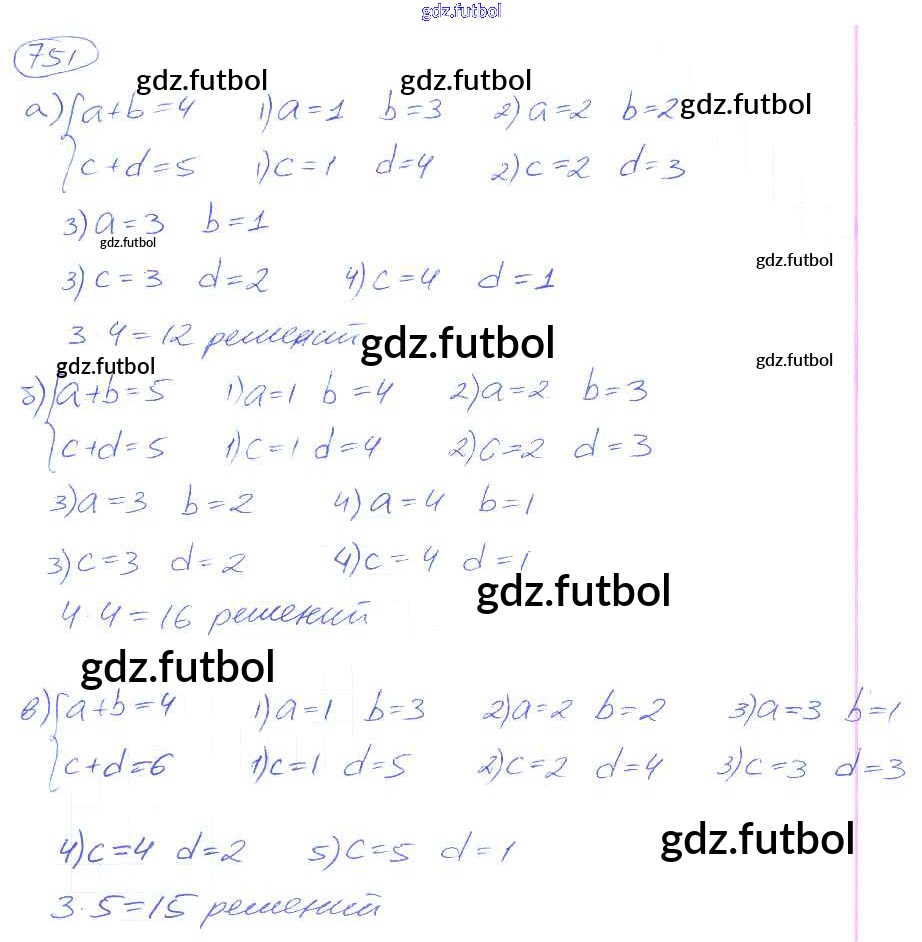 gdz.futbol
751
gdz.futbol gdz.futbol
а) { a+b=4 1) a=1 b=3 2) a=2 b=2 gdz.futbol
c+d=5 1) c=1 d=4 2) c=2 d=3
3) a=3 b=1
gdz.futbol gdz.futbol
3) c=3 d=2 4) c=4 d=1
3·4=12 решений gdz.futbol
gdz.futbol gdz.futbol
б) { a+b=5 1) a=1 b=4 2) a=2 b=3
c+d=5 1) c=1 d=4 2) c=2 d=3
3) a=3 b=2 4) a=4 b=1
3) c=3 d=2 4) c=4 d=1
gdz.futbol
4·4=16 решений
gdz.futbol
в) { a+b=4 1) a=1 b=3 2) a=2 b=2 3) a=3 b=1
c+d=6 1) c=1 d=5 2) c=2 d=4 3) c=3 d=3
gdz.futbol
4) c=4 d=2 5) c=5 d=1
3·5=15 решений